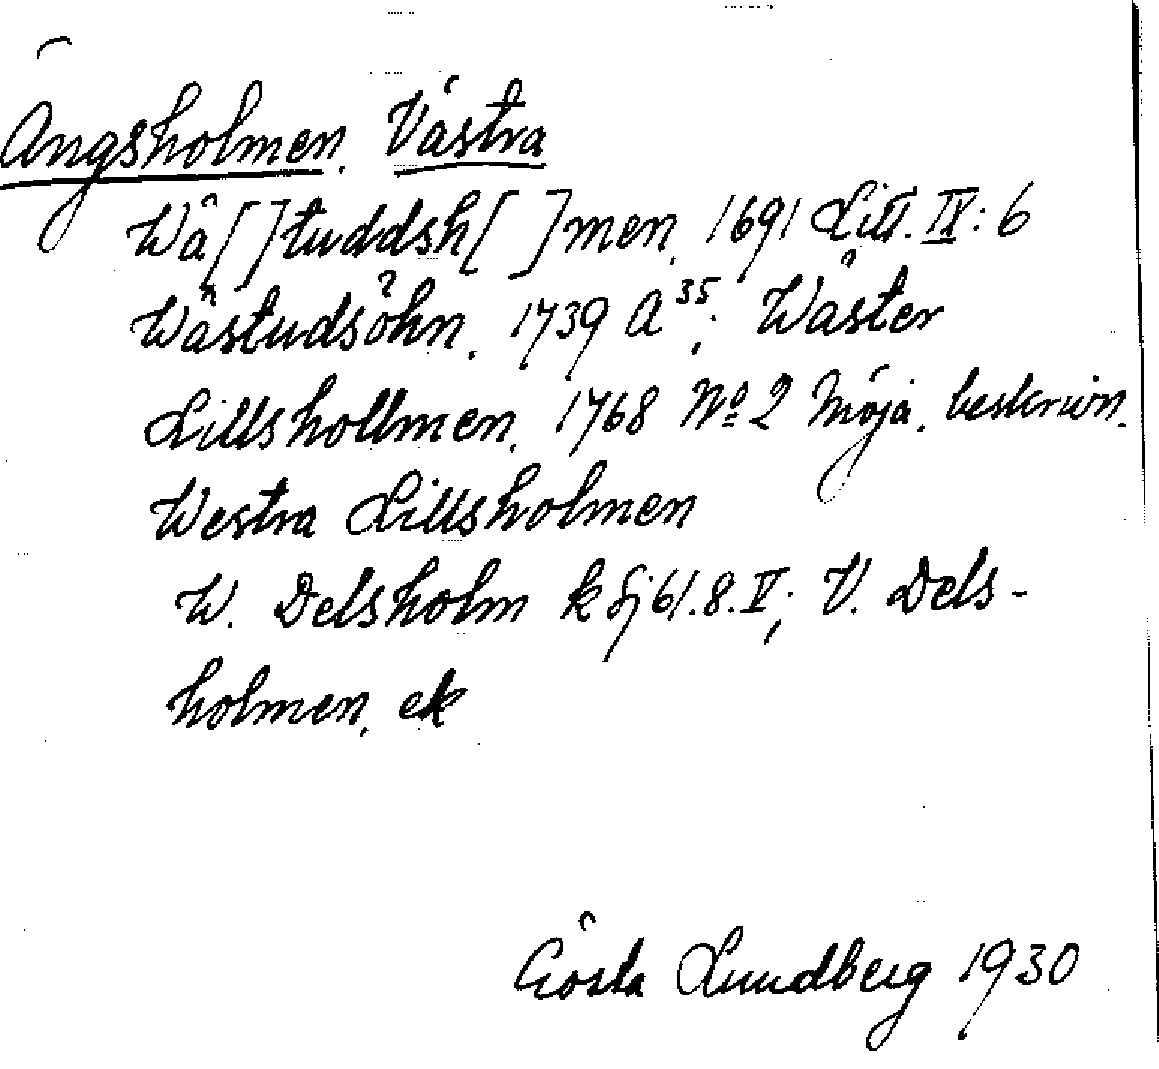 Ängsholmen, Västra
Wä[ ]tuddsh[ ]men, 1691 Litt. IX: 6
Wästudsöhn, 1739 A 35; Wäster
Lillshollmen, 1768 No 2 Möja, beskrivn.
Westra Lillsholmen
W. Delsholm k Sj 61.8.V; V. Dels-
holmen, ek
Gösta Lundberg 1930